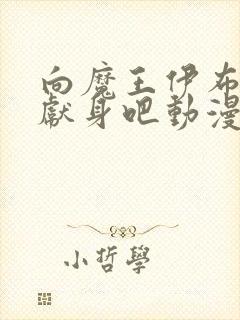 向魔王伊布
獻身吧動漫
小哲學